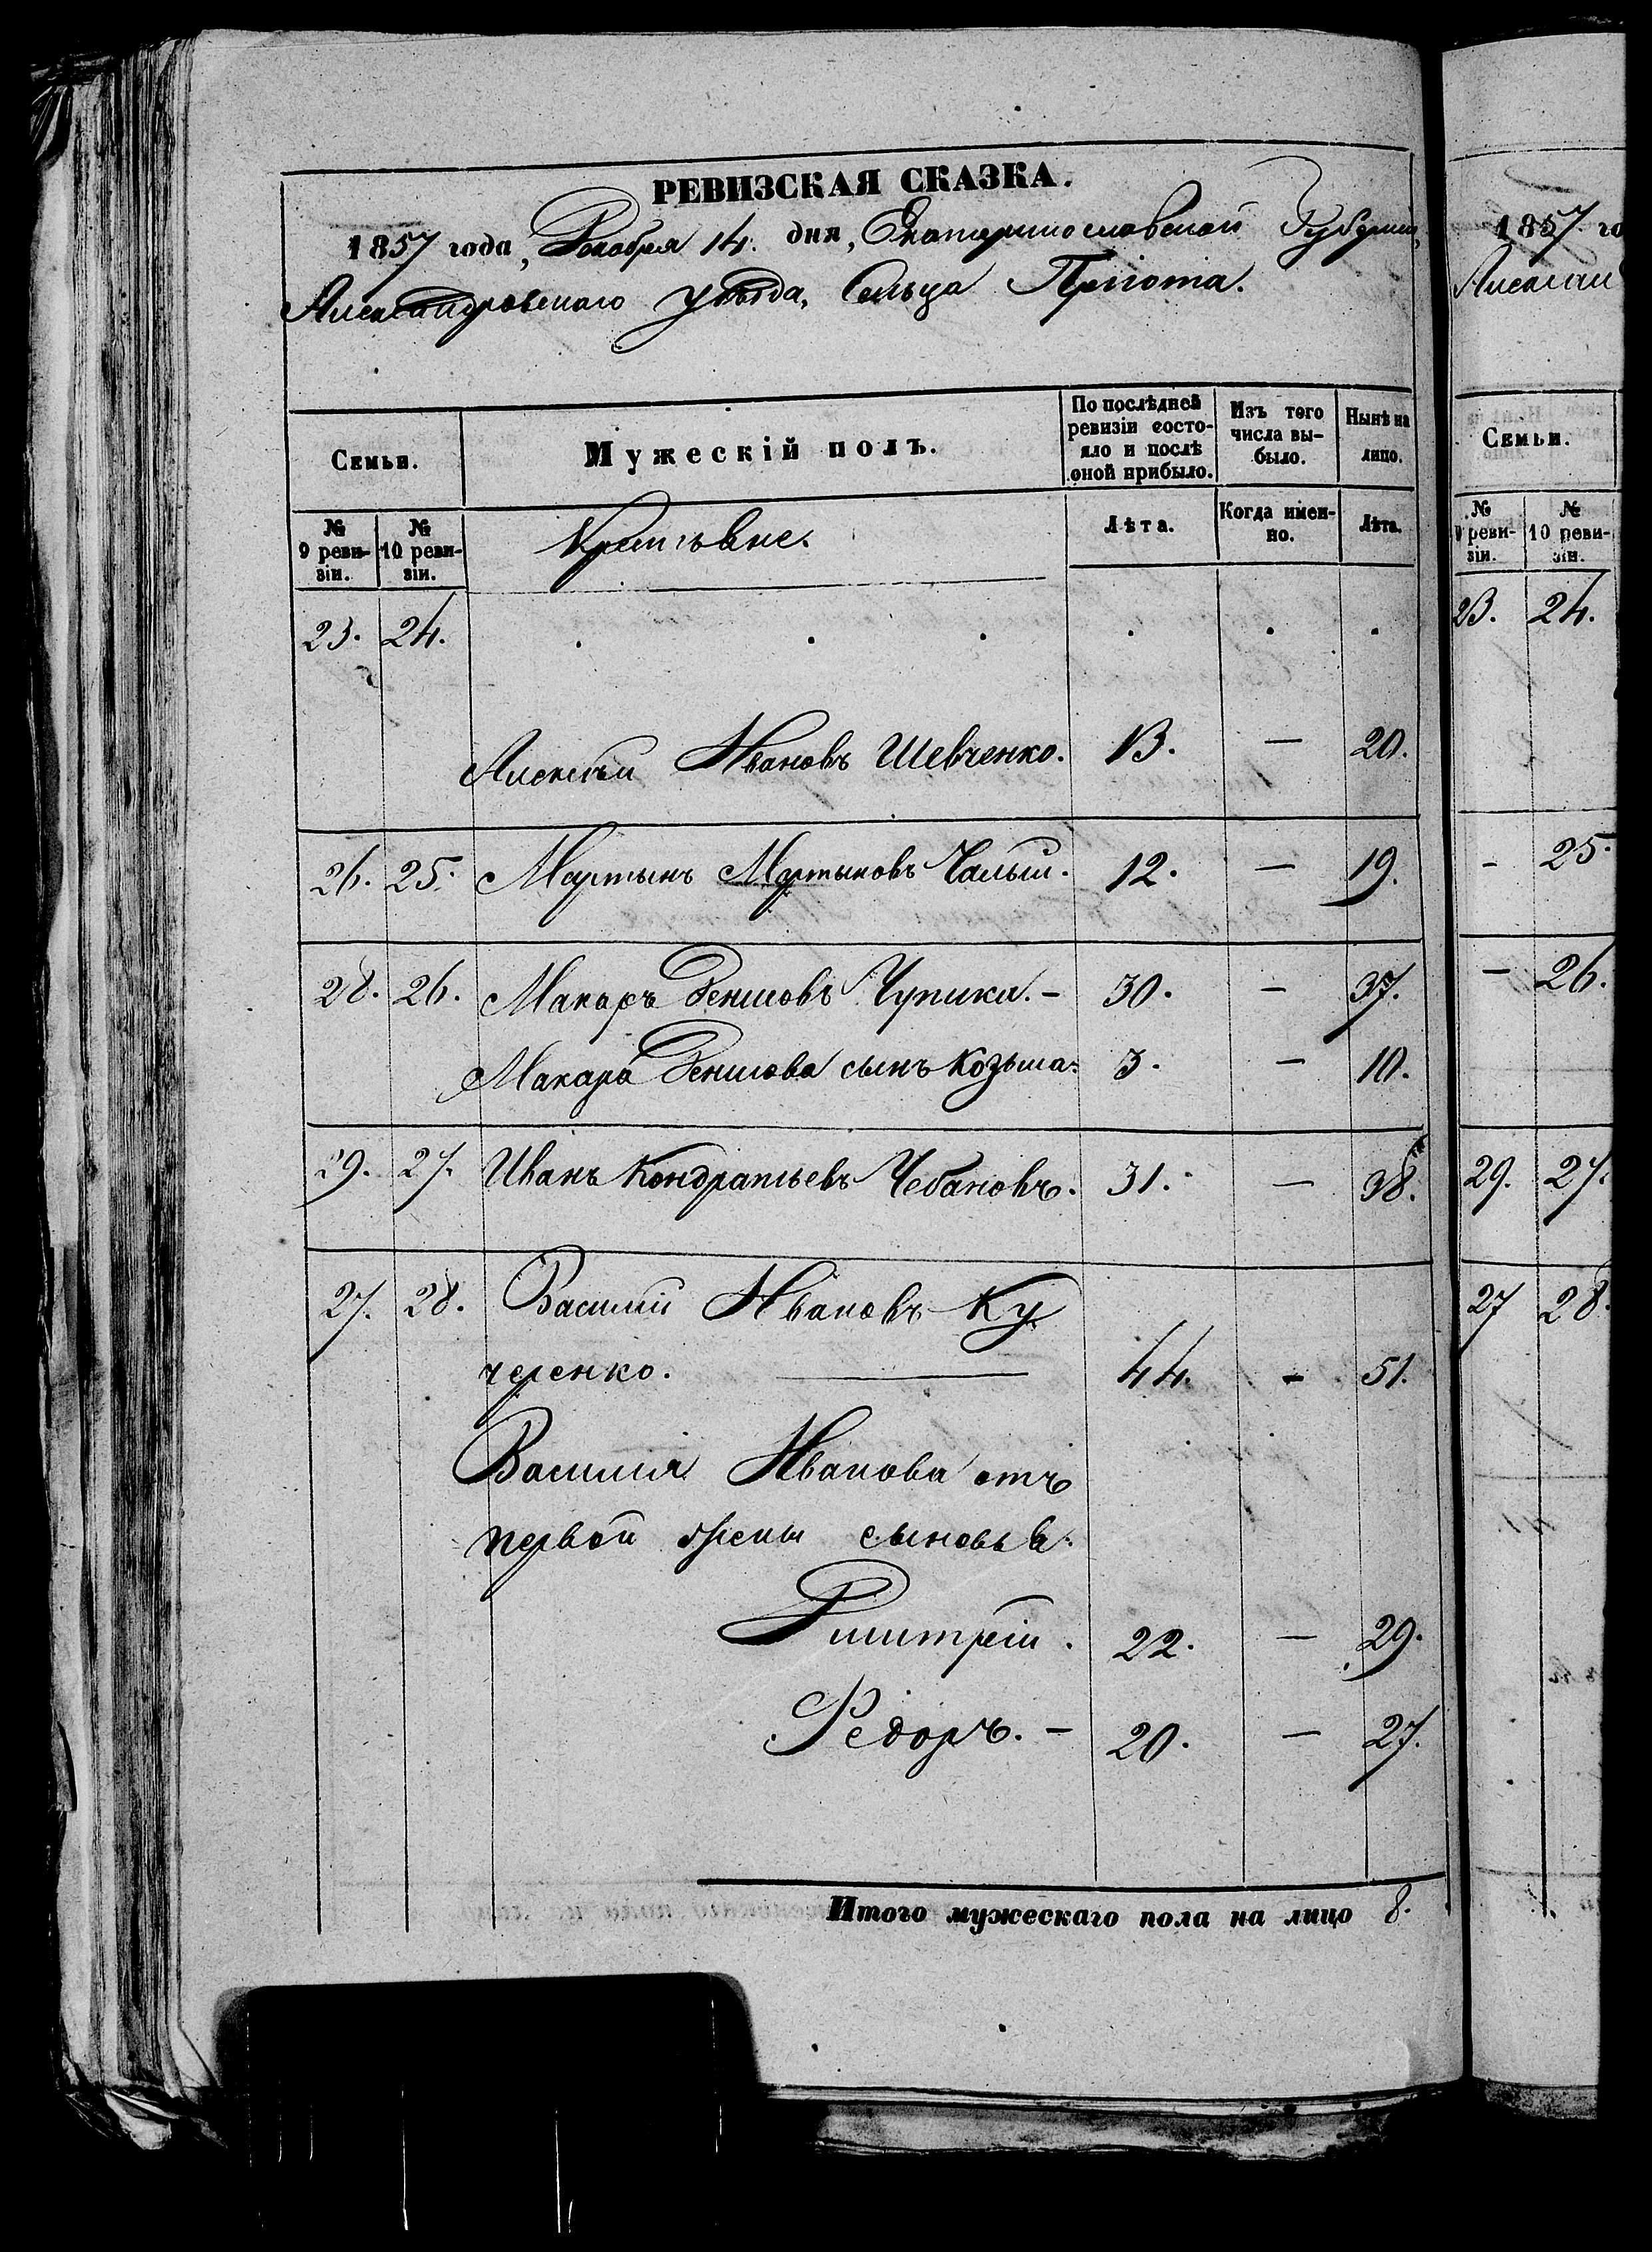 РЕВИЗСКАЯ СКАЗКА.
1857 года, Декабря 14. дня, Екатеринославской Губерніи,
Александровскаго уѣзда, Сельца Пріюта.
Семьи.
Мужескій полъ.
По послѣдней ревизіи состояло и послѣ оной прибыло.
Изъ того числа выбыло.
Нынѣ на лицо.
№ 9 ревизіи.
№ 10 ревизіи.
Крестьяне.
Лѣта.
Когда именно.
Лѣта.
23. 24.
Алексѣй Ивановъ Шевченко. 13. — 20.
26. 25. Мартынъ Мартыновъ Чалый. 12. — 19.
28. 26. Макаръ Денисовъ Чупика. — 30. — 37.
Макара Денисова сынъ Козьма. 3. — 10.
29. 27. Иванъ Кондратьевъ Чебановъ. 31. — 38.
27. 28. Василій Ивановъ Ку
черенко. — 44. — 51.
Василія Иванова отъ
первой жены сыновья:
Дмитрій. 22. — 29.
Федоръ. — 20. — 27.
Итого мужескаго пола на лицо 8.
1857 го
Алексан
Семьи.
№ 9 ревизіи.
№ 10 ревизіи.
23. 24.
- 25.
- 26.
29. 27.
27 28.